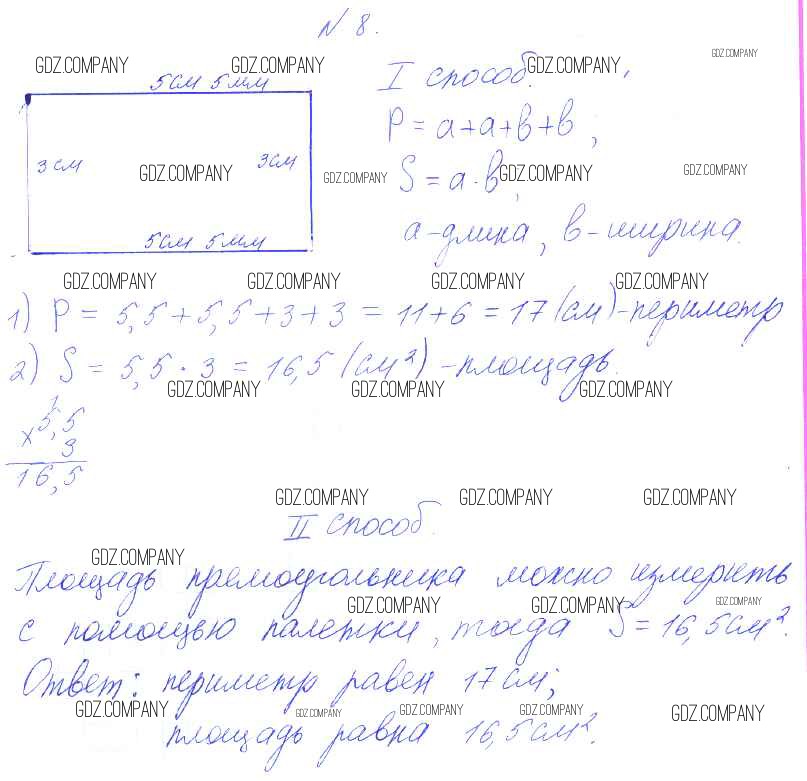 N 8.
GDZ.COMPANY GDZ.COMPANY GDZ.COMPANY GDZ.COMPANY
5см 5мм
I способ.
P = a+a+b+b;
3см 3см
GDZ.COMPANY GDZ.COMPANY GDZ.COMPANY GDZ.COMPANY
S = a·b,
5см 5мм
a-длина, b-ширина.
GDZ.COMPANY GDZ.COMPANY GDZ.COMPANY GDZ.COMPANY
1) P = 5,5+5,5+3+3 = 11+6 = 17 (см)-периметр
2) S = 5,5·3 = 16,5 (см²)-площадь.
GDZ.COMPANY GDZ.COMPANY GDZ.COMPANY
1
×5,5
3
16,5
GDZ.COMPANY GDZ.COMPANY GDZ.COMPANY
II способ.
GDZ.COMPANY
Площадь прямоугольника можно измерить
GDZ.COMPANY GDZ.COMPANY GDZ.COMPANY
с помощью палетки, тогда S = 16,5см².
Ответ: периметр равен 17см;
GDZ.COMPANY GDZ.COMPANY GDZ.COMPANY GDZ.COMPANY GDZ.COMPANY
площадь равна 16,5см².